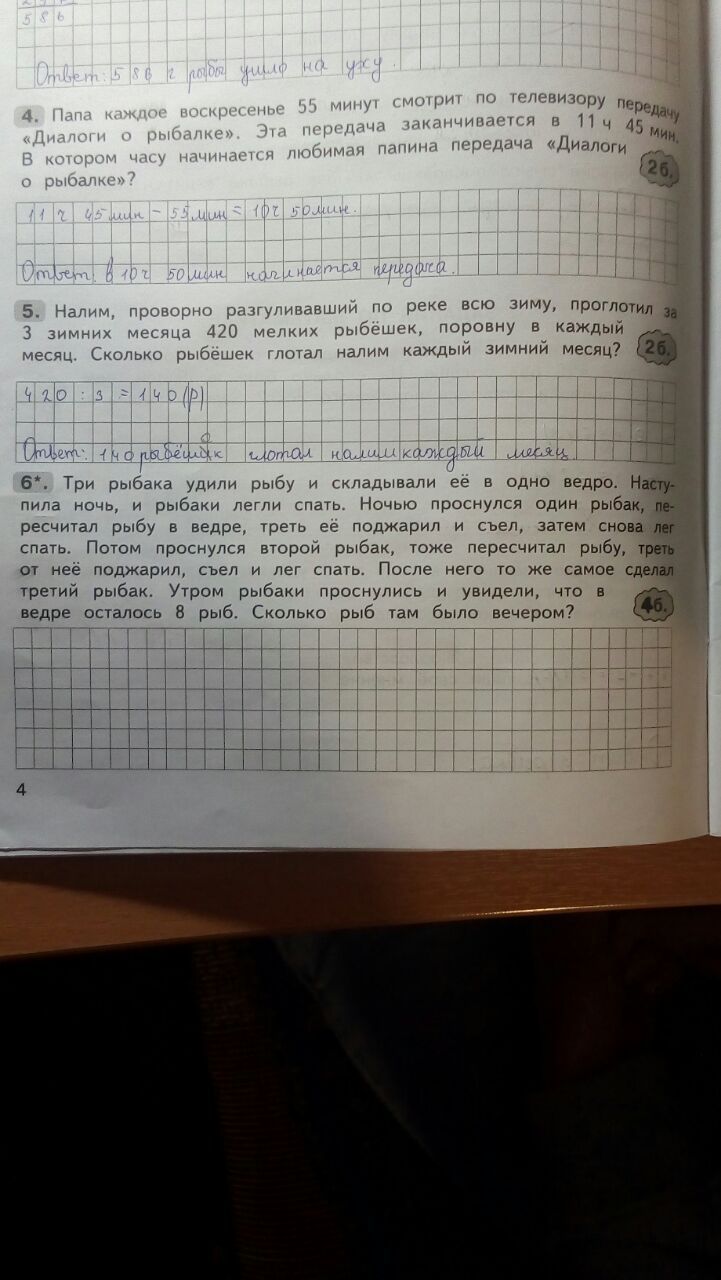 586
Ответ: 586 г рыбы ушло на уху.
4. Папа каждое воскресенье 55 минут смотрит по телевизору передачу
«Диалоги о рыбалке». Эта передача заканчивается в 11 ч 45 мин.
В котором часу начинается любимая папина передача «Диалоги
о рыбалке»?
2б.
11 ч 45 мин - 55 мин = 10 ч 50 мин.
Ответ: в 10 ч 50 мин начинается передача.
5. Налим, проворно разгуливавший по реке всю зиму, проглотил за
3 зимних месяца 420 мелких рыбёшек, поровну в каждый
месяц. Сколько рыбёшек глотал налим каждый зимний месяц?
2б.
420 : 3 = 140 (р)
Ответ: 140 рыбёшек глотал налим каждый месяц.
6*. Три рыбака удили рыбу и складывали её в одно ведро. Насту-
пила ночь, и рыбаки легли спать. Ночью проснулся один рыбак, пе-
ресчитал рыбу в ведре, треть её поджарил и съел, затем снова лег
спать. Потом проснулся второй рыбак, тоже пересчитал рыбу, треть
от неё поджарил, съел и лег спать. После него то же самое сделал
третий рыбак. Утром рыбаки проснулись и увидели, что в
ведре осталось 8 рыб. Сколько рыб там было вечером?
4б.
4